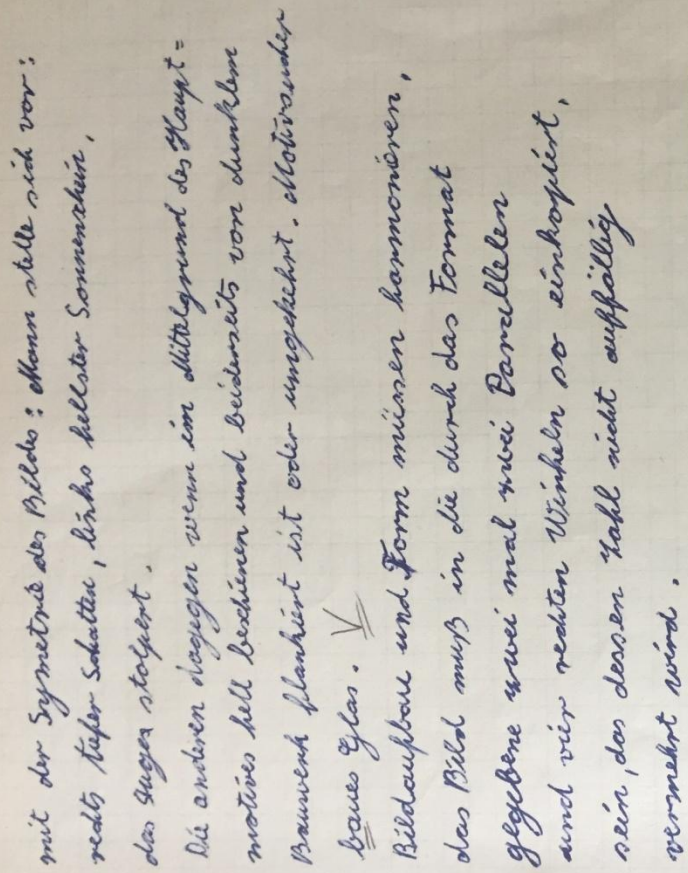 mit der Symetrie des Bildes: Mann stelle sich vor:
rechts tiefer Schatten, links hellster Sonnenschein,
das Auge stolpert.
Die anderen dagegen wenn im Mittelgrund des Haupt=
motives hell beschienen und beiderseits von dunklem
Bauwerk flankiert ist oder umgekehrt. Motivsucher
baues Glas.
Bildaufbau und Form müssen harmonieren,
das Bild muß in die durch das Format
gegebene zwei mal zwei Parallelen
und vier rechten Winkeln so einkopiert,
sein, das dessen Zahl nicht auffällig
vermehrt wird.